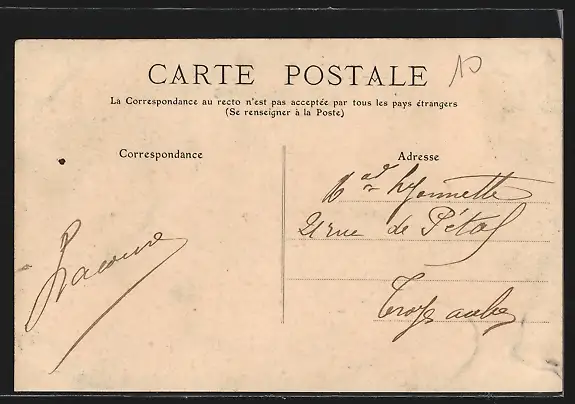 CARTE POSTALE
La Correspondance au recto n'est pas acceptée par tous les pays étrangers
(Se renseigner à la Poste)
Correspondance
Adresse
21 rue de
Troyes aube